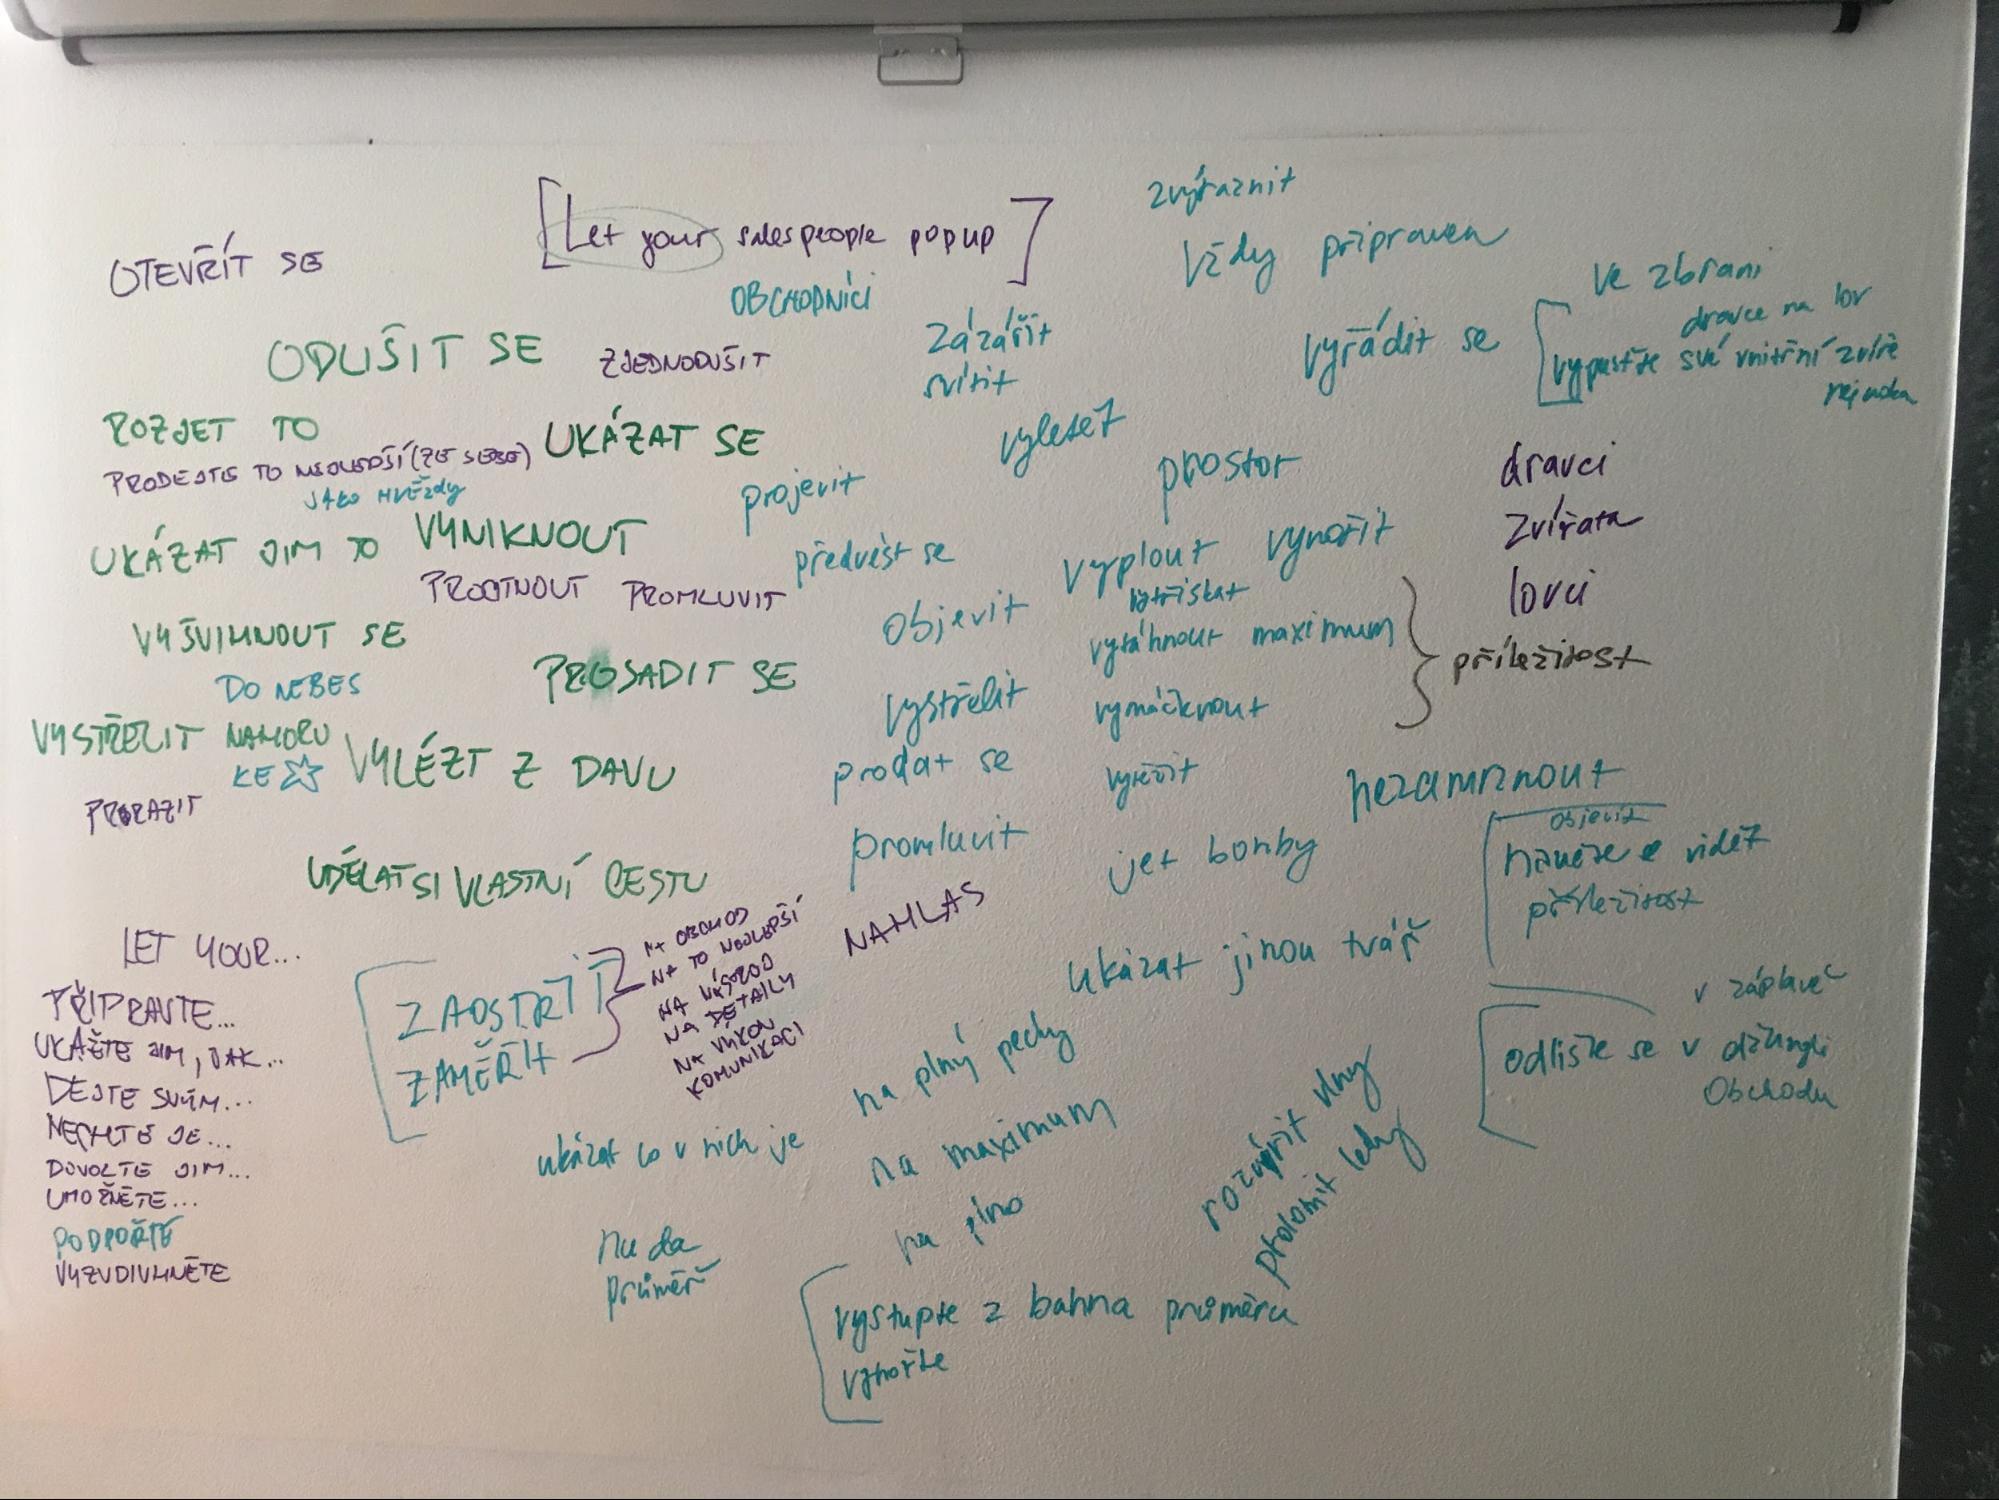 OTEVŘÍT SE
[Let your salespeople popup]
OBCHODNÍCI
ODLIŠIT SE
ZJEDNODUŠIT
ROZJET TO
UKÁZAT SE
PRODEJTE TO NEJLEPŠÍ (ZE SEBE)
JAKO HVĚZDY
UKÁZAT JIM TO
VYNIKNOUT
PROTNOUT PROMLUVIT
VYŠVIHNOUT SE
DO NEBES
PROSADIT SE
VYSTŘELIT NAHORU
KE
VYLÉZT Z DAVU
PRORAZIT
UDĚLAT SI VLASTNÍ CESTU
LET YOUR...
PŘIPRAVTE...
UKAŽTE JIM, JAK...
DEJTE SVÝM...
NECHTE JE...
DOVOLTE JIM...
UMOŽNĚTE...
PODPOŘTE
VYZVDIVHNĚTE
ZAOSTŘIT
ZAMĚŘIT
NA OBCHOD
NA TO NEJLEPŠÍ
NA
NA DETAILY
NA VÝKON
KOMUNIKACI
NAHLAS
zvýraznit
Vždy připraven
zázářit
svítit
vyřádit se
ve zbrani
dravce na lov
vypusťte své vnitřní zvíře
vyletět
prostor
projevit
předvést se
vyplout
vynořit
objevit
vytřískat
vytáhnout maximum
vystřelit
vymáčknout
prodat se
vytěžit
promluvit
jet bomby
dravci
zvířata
lovci
příležitost
nezamrznout
objevit
vidět
příležitost
ukázat jinou tvář
v záplavě
odlište se v džungli
Obchodu
na plný pecky
na maximum
na plno
ukázat co v nich je
nuda
průměr
rozvířit vlny
prolomit ledy
vystupte z bahna průměru
vynořte